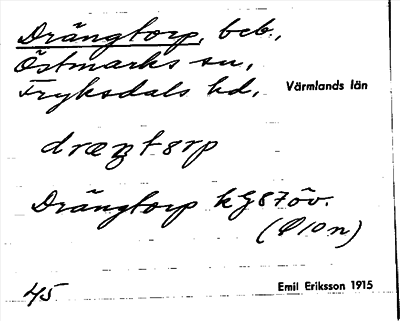 Drängtorp, beb.,
Östmarks sn,
Fryksdals hd, Värmlands län
dræŋtɔrp
Drängtorp kg 87 öv.
(Ö10n)
45 Emil Eriksson 1915